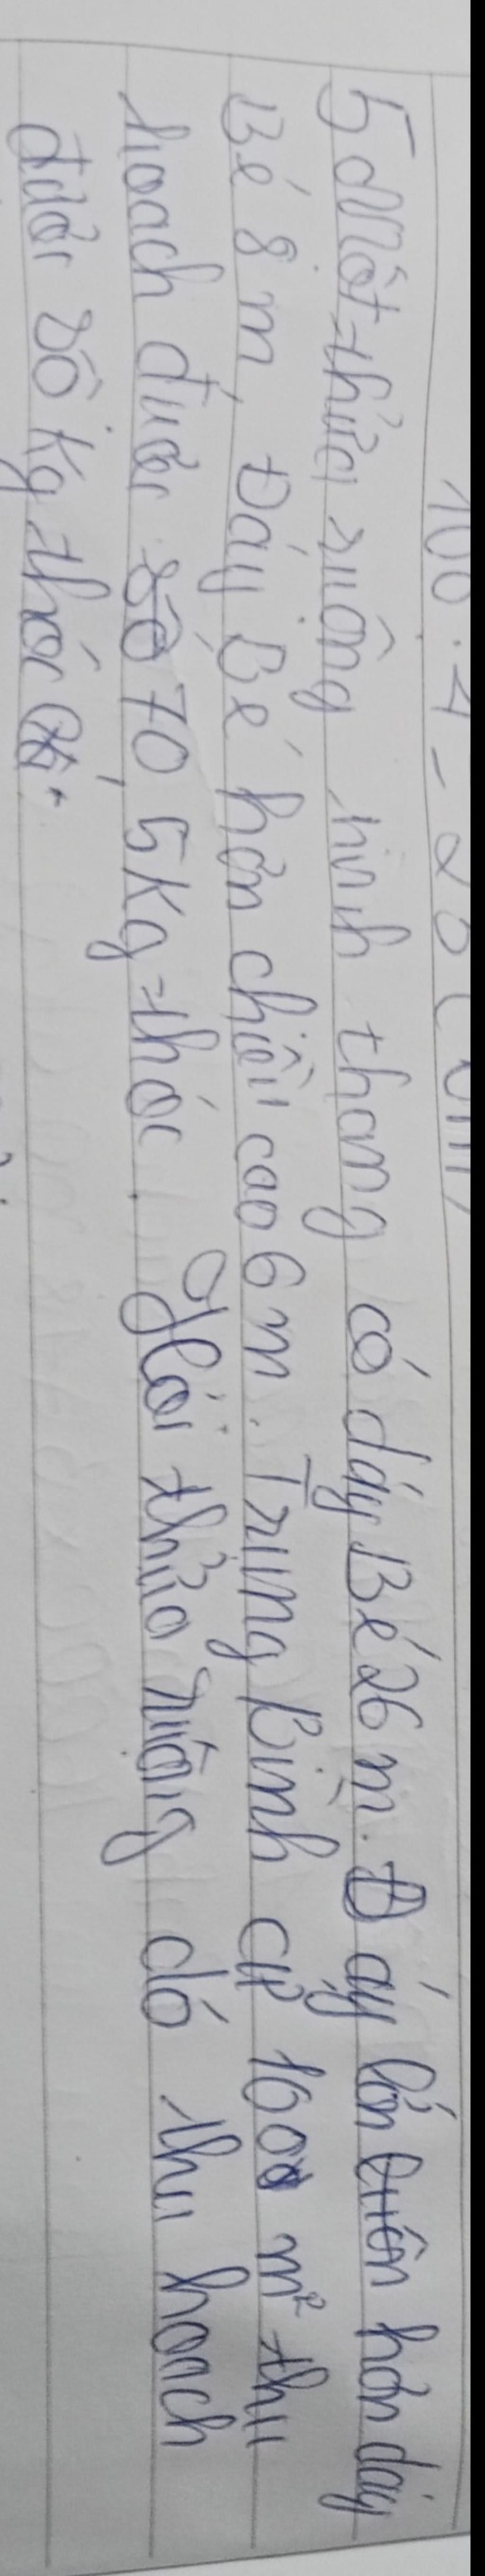 5 Một thửa ruộng hình thang có đáy Bé 26 m. Đáy lớn hơn đáy
Bé 8 m, Đáy Bé hơn chiều cao 6 m. Trung Bình cứ 100 m² thu
hoạch được 70,5 kg thóc. Hỏi thửa ruộng đó thu hoạch
được số kg thóc